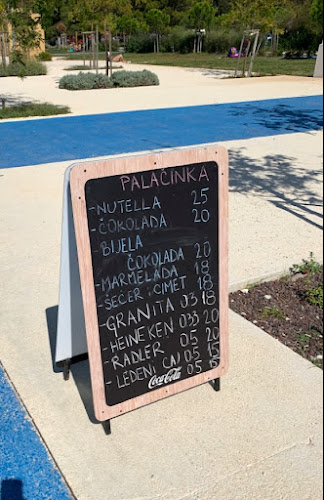 PALAČINKA
-NUTELLA 25
-ČOKOLADA 20
-BIJELA
ČOKOLADA 20
-MARMELADA 18
-ŠEĆER, CIMET 18
-GRANITA 03 18
-HEINEKEN 033 20
-RADLER 0.5 20
-LEDENI ČAJ 0.5 15
Coca-Cola 0.5 15